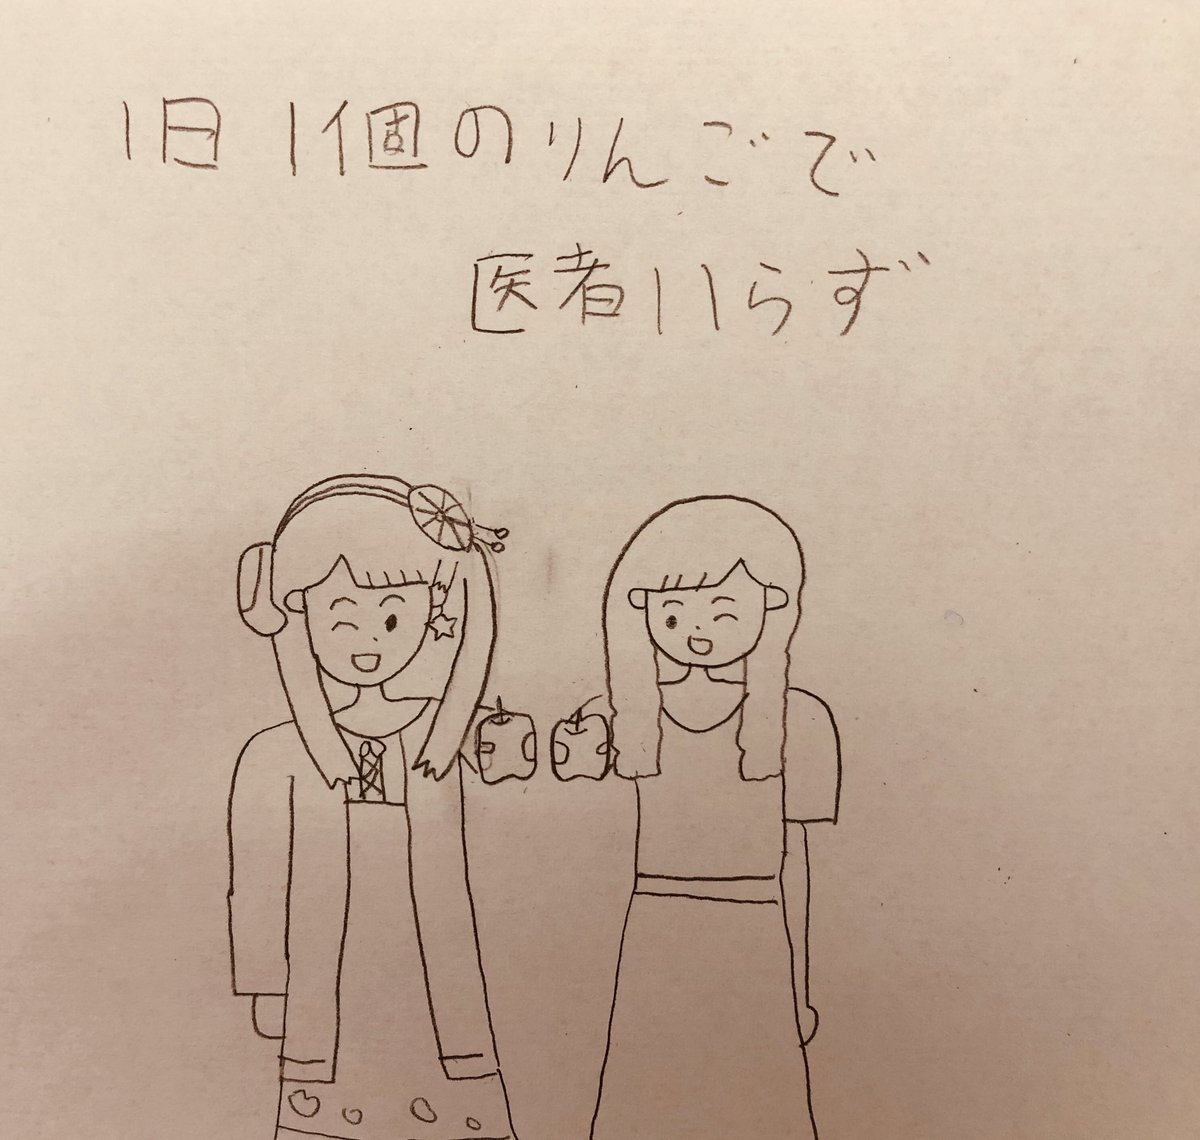 1日1個のりんごで
医者いらず